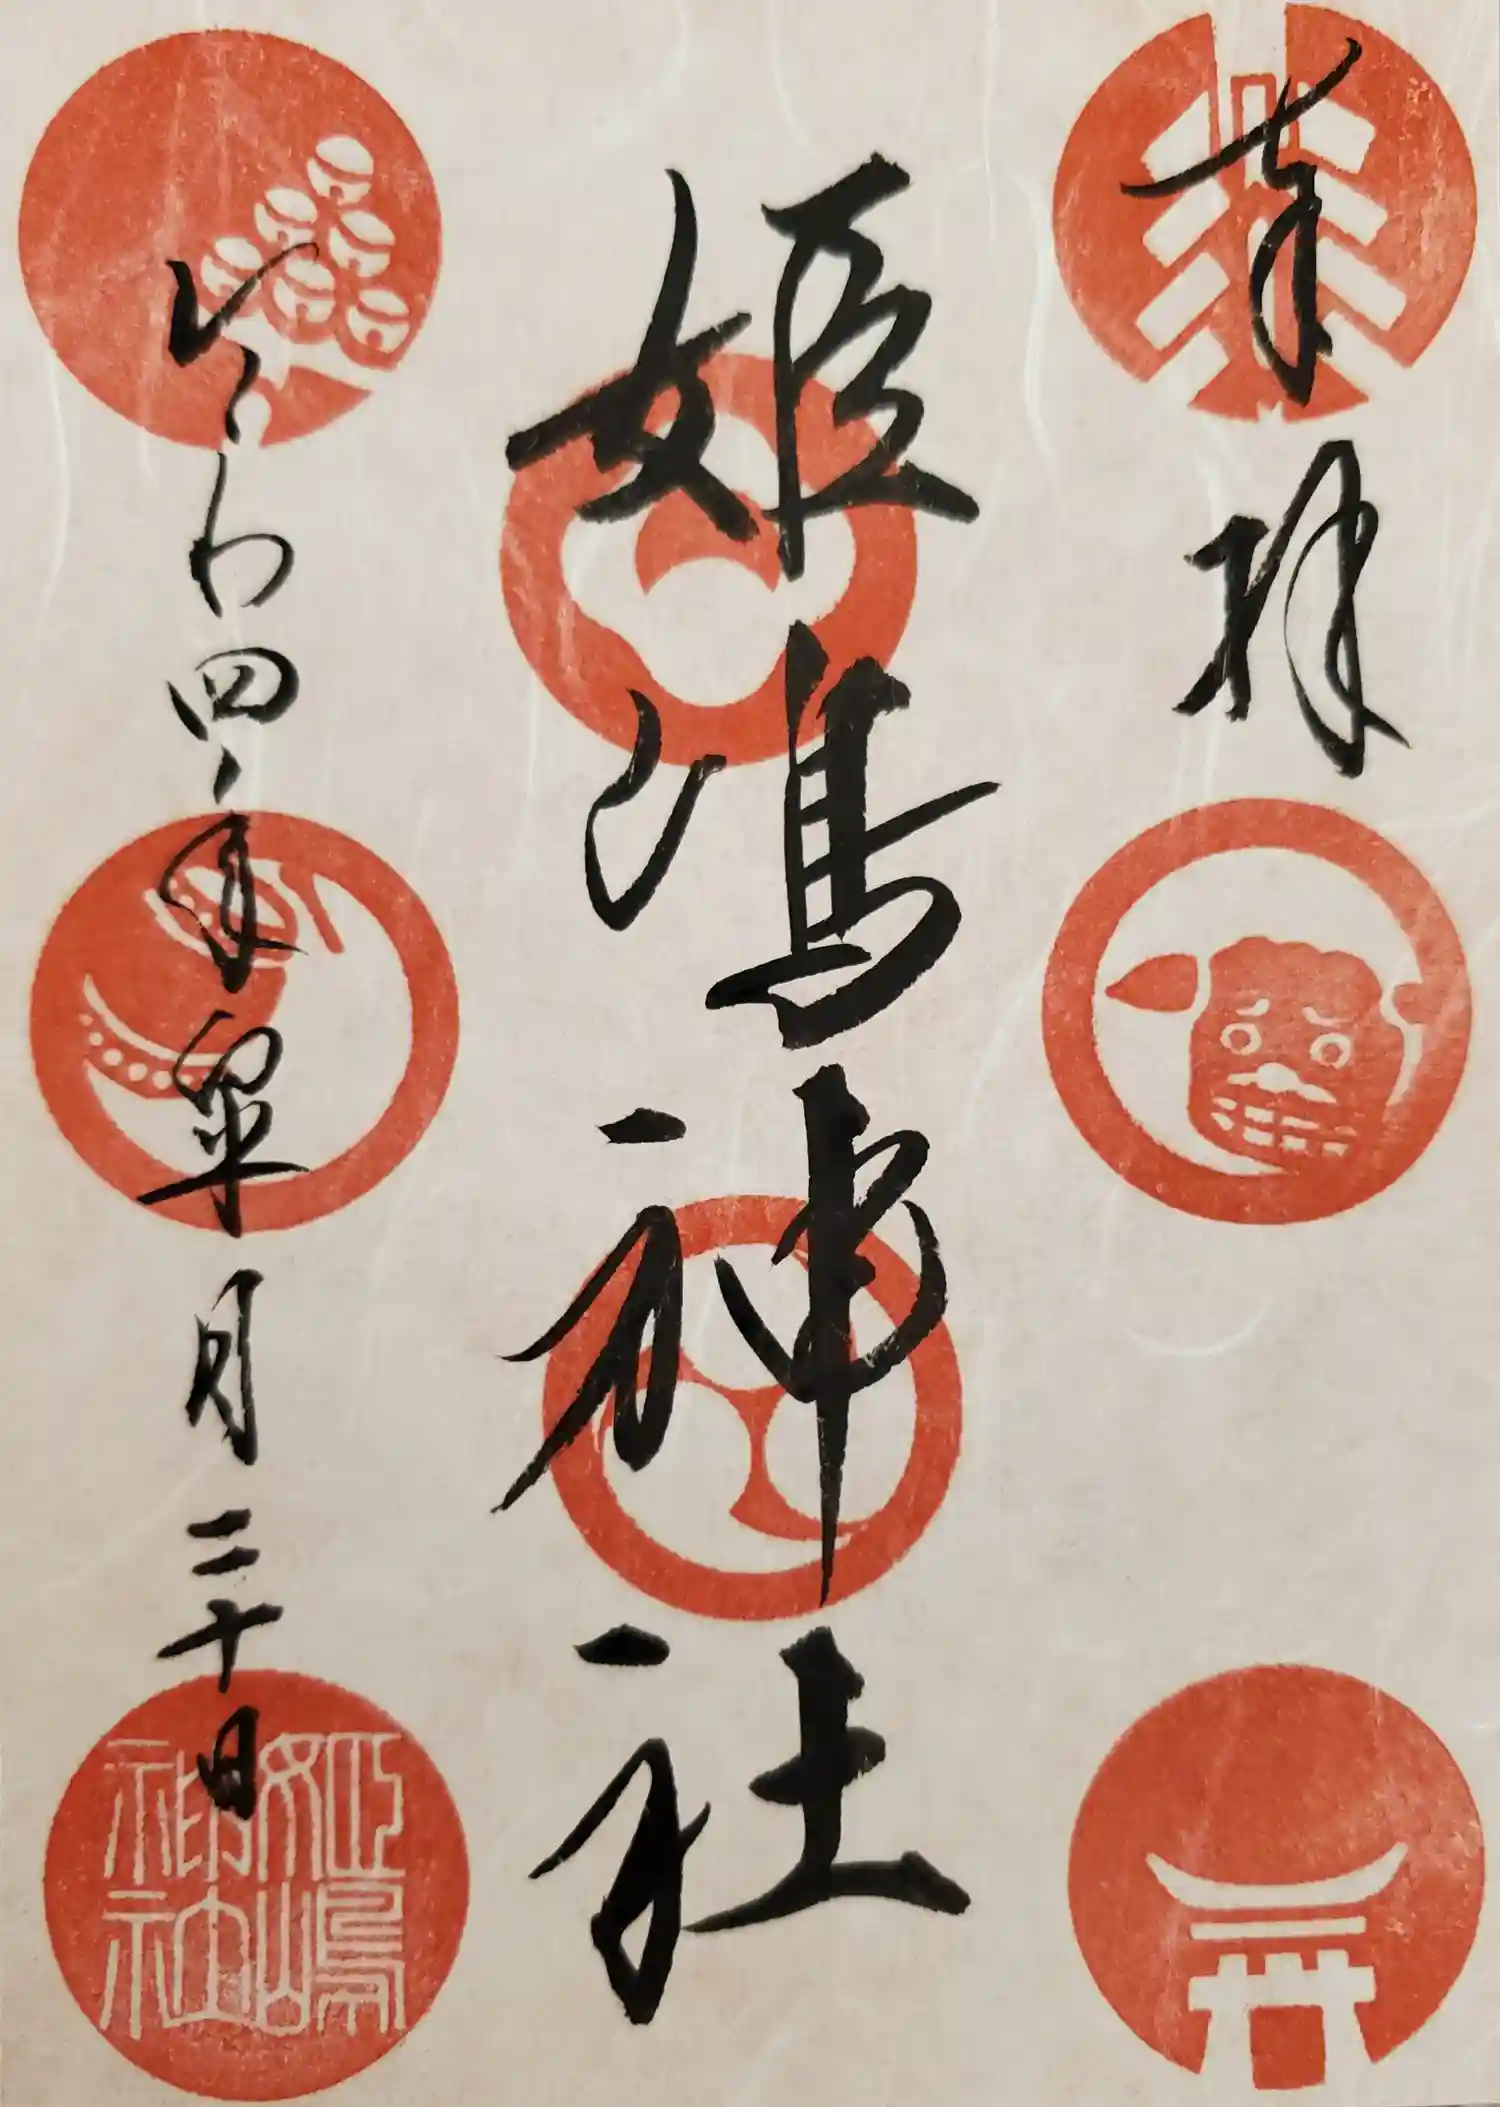 奉拝
姫嶋神社
令和四年皐月二十日
姫嶋
神社